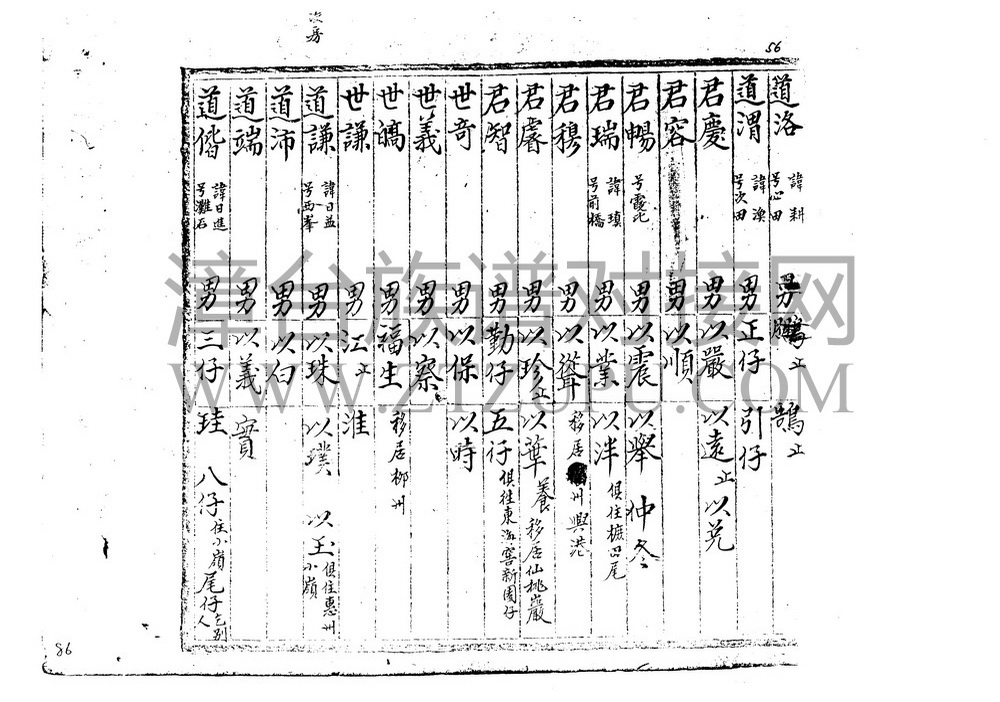 次房
56
道洛 諱耕 号心田 男 鵬止 鵠止
道渭 諱漁 号次田 男 正仔 引仔
君慶 男 以嚴 以遠止 以兑
君容 男 以順
君暢 号霞 男 以震 以舉 仲冬
君瑞 諱瑱 号前橋 男 以業 以泮 俱住 尾
君穆 男 以聳 移居 州興港
君睿 男 以珍止 以葉 養 移居仙桃巖
君智 男 勤仔 五仔 俱往東海窖新園仔
世奇 男 以保 以時
世義 男 以察
世皜 男 福生 移居柳州
世謙 男 江止 淮
道謙 諱日益 号西峯 男 以珠 以璞 以玉 俱住惠州小嶺
道沛 男 以白
道端 男 以義 實
道偕 諱日進 号灘石 男 三仔 珪 八仔 住小嶺 尾仔 乞别人
86
漳台族谱对接网
WWW.ZTZUPU.COM